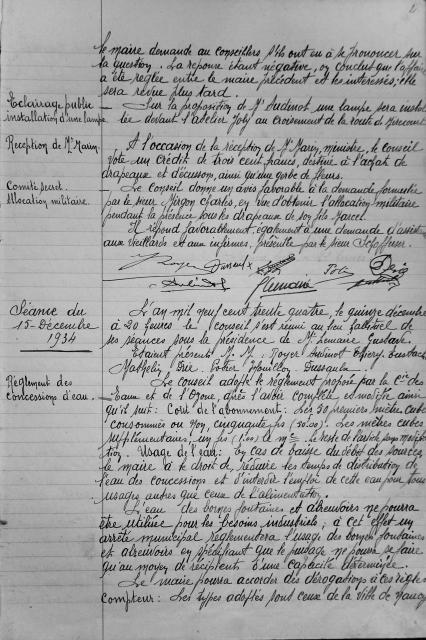 le maire demande au conseillers s'ils ont eu à se prononcer sur
la question. La réponse étant négative, on conclut que l'affaire
a été réglée entre le maire précédent et les intéressés; elle
sera revue plus tard.
Eclairage public
installation d'une lampe
— Sur la proposition de Mr Sudenot une lampe sera instal
lée devant l'atelier Joly au croisement de la route de Mirecourt.
Réception de Mr Marin.
A l'occasion de la réception de Mr Marin, ministre, le conseil
vote un crédit de trois cent francs, destiné à l'achat de
drapeaux et d'écusson, ainsi qu'une gerbe de fleurs.
Comité secret.
Allocation militaire.
— Le conseil donne un avis favorable à la demande formulée
par le sieur Charles, en vue d'obtenir l'allocation militaire
pendant la présence sous les drapeaux de son fils Marcel.
Il répond favorablement, également à une demande d'assist
aux vieillards et aux infirmes, présentée par le sieur
Royer
Lemaire
Joly
Séance du
15 Décembre
1934
L'an mil neuf cent trente quatre, le quinze décembre
à 20 heures le conseil s'est réuni au lieu habituel de
ses séances sous la présidence de Mr Lemaire Gustave.
Etaient présents M.M. Royer Sudenot Thiery
Mathelin
Règlement des
concessions d'eau. —
Le Conseil adopte le règlement proposé par la Cie des
Eaux et de l'Ozone, après l'avoir complété et modifié ainsi
qu'il suit: Coût de l'abonnement: Les 30 premiers mètres cube
consommés ou non, cinquante frs (50.00). Les mètres cubes
supplémentaires, un frs (1.00) le m3 = le reste de l'article sans modifica
tion. Usage de l'eau: En cas de baisse du débit des sources
le maire a le droit de réduire les temps de distribution de
l'eau des concessions et d'interdire l'emploi de cette eau pour tous
usages autres que ceux de l'alimentation.
L'eau des bornes fontaines et abreuvoirs ne pourra
être utilisée pour les besoins industriels; à cet effet un
arrêté municipal règlementera l'usage des bornes fontaines
et abreuvoirs en spécifiant que le puisage ne pourra se faire
qu'au moyen de récipients d'une capacité déterminée.
Le maire pourra accorder des dérogations à ces règles
Compteur: Les types adoptés sont ceux de la Ville de Nancy